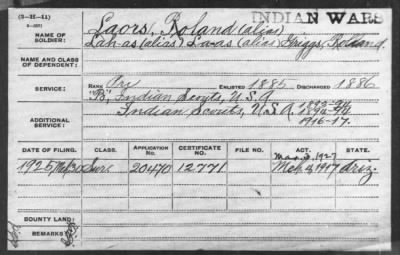 (3-21-11)
INDIAN WARS
NAME OF
SOLDIER:
Laors, Roland (alias)
Lah-as (alias) La-as (alias) Griggs, Rolland.
NAME AND CLASS
OF DEPENDENT:
SERVICE:
RANK Pri ENLISTED 1885 DISCHARGED 1886
"B", Indian Scouts, U.S.A.
ADDITIONAL
SERVICE:
Indian Scouts, U.S.A.
1916-17.
DATE OF FILING.
CLASS.
APPLICATION
NO.
CERTIFICATE
NO.
FILE NO.
ACT.
STATE.
1925 Surv. 20470 12771 Mar. 3, 1927
Mch. 4, 1917 Ariz.
BOUNTY LAND:
REMARKS: